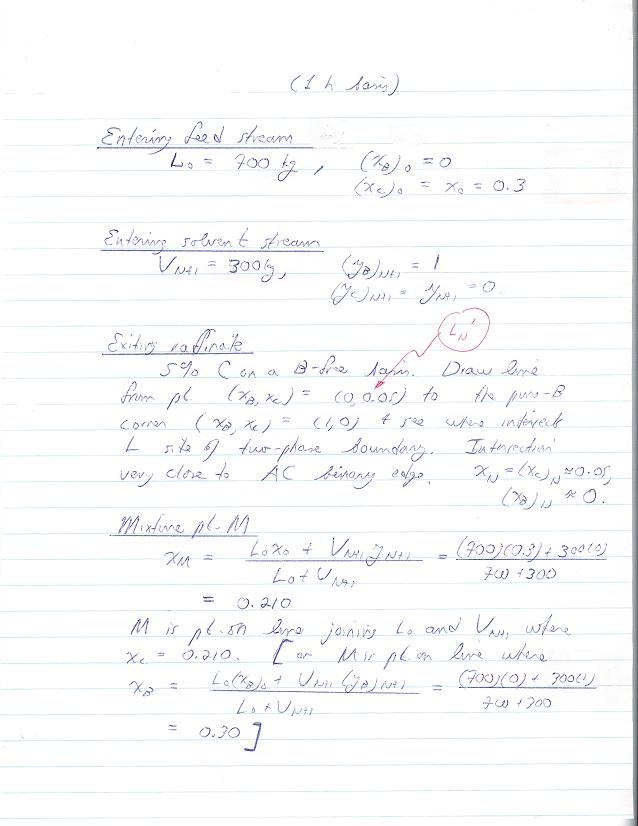 (1 h basis)
Entering feed stream
L₀ = 700 kg, (x_B)₀ = 0
(x_C)₀ = x₀ = 0.3
Entering solvent stream
V_N+1 = 300kg, (y_B)_N+1 = 1
(y_C)_N+1 = y_N+1 = 0.
L_N'
Exiting raffinate
5% C on a B-free basis. Draw line
from pt. (x_B, x_C) = (0, 0.05) to the pure-B
corner (x_B, x_C) = (1,0) & see where intersects
L side of two-phase boundary. Intersection
very close to AC binary edge. x_N = (x_C)_N ≈ 0.05,
(x_B)_N ≈ 0.
Mixture pt. M
x_M = (L₀x₀ + V_N+1 y_N+1) / (L₀ + V_N+1) = ((700)(0.3) + 300(0)) / (700 + 300)
= 0.210
M is pt. on line joining L₀ and V_N+1 where
x_C = 0.210. [or M is pt. on line where
x_B = (L₀(x_B)₀ + V_N+1 (y_B)_N+1) / (L₀ + V_N+1) = ((700)(0) + 300(1)) / (700 + 300)
= 0.30]